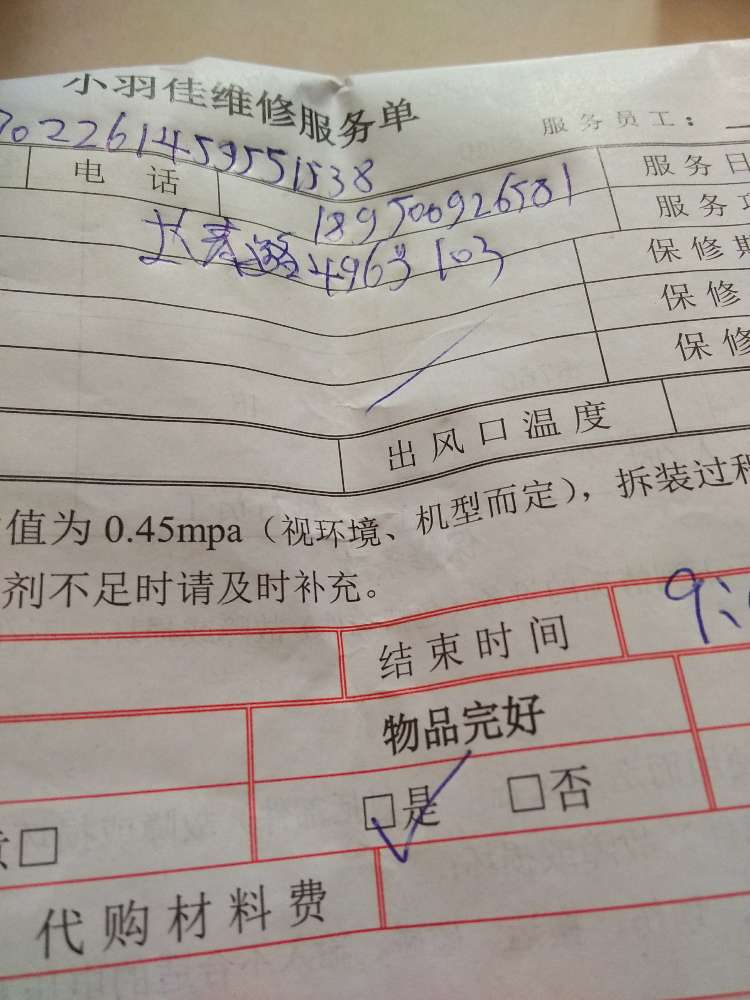 小羽佳维修服务单
服务员工：
702261459551538
电话
189500926581
服务日
服务项
长青路496弄103
保修期
保修
保修
出风口温度
值为0.45mpa（视环境、机型而定），拆装过程
剂不足时请及时补充。
结束时间
9:
物品完好
□是 □否
意□
代购材料费